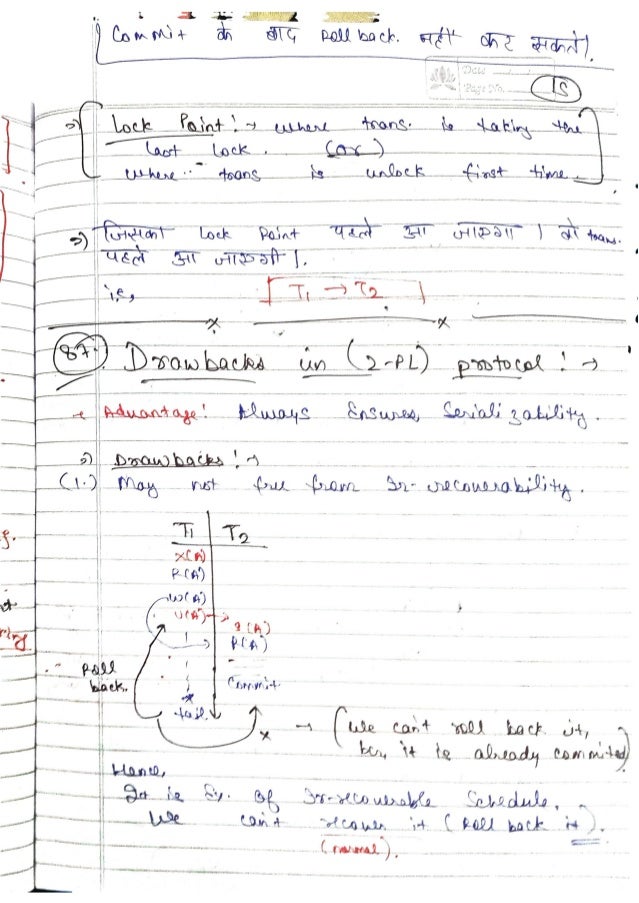 Commit के बाद Roll back. नहीं कर सकते।
Date
Page No.
15
=> Lock Point! → where trans. is taking the
last lock. (or)
where.. trans is unlock first time.
=> जिसका Lock Point पहले आ जाएगा। वो trans.
पहले आ जाएगी।.
i.e, T1 → T2
87. Drawbacks in (2-PL) protocol! →
Advantage! Always Ensures, Serializability.
=> Drawbacks! →
(1.) May not free from Ir-recoverability.
T1 T2
X(A)
R(A)
W(A)
U(A) →
S(A)
R(A)
Roll
back.
Commit
fail.
x → (We can't roll back it,
bcz, it is already commited)
Hence,
It is Ex. Of Ir-recoverable Schedule,
We can't recover it (Roll back it).
(normal).